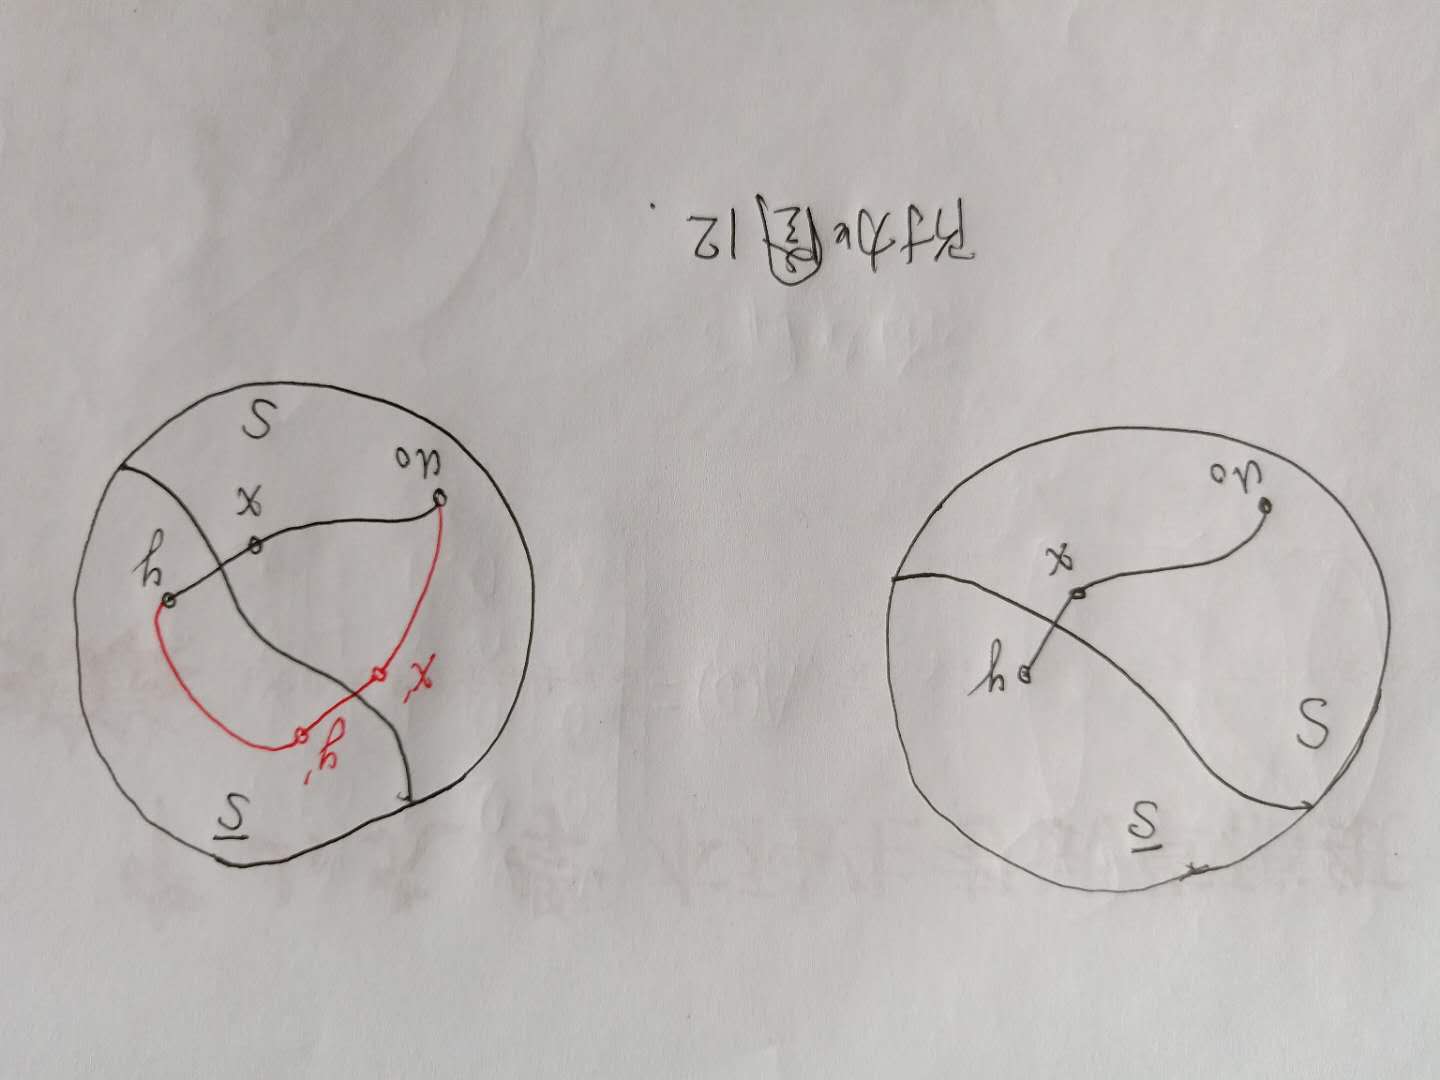 S̄
S
y
x
u₀
S̄
y'
x'
y
x
u₀
S
附加图12.